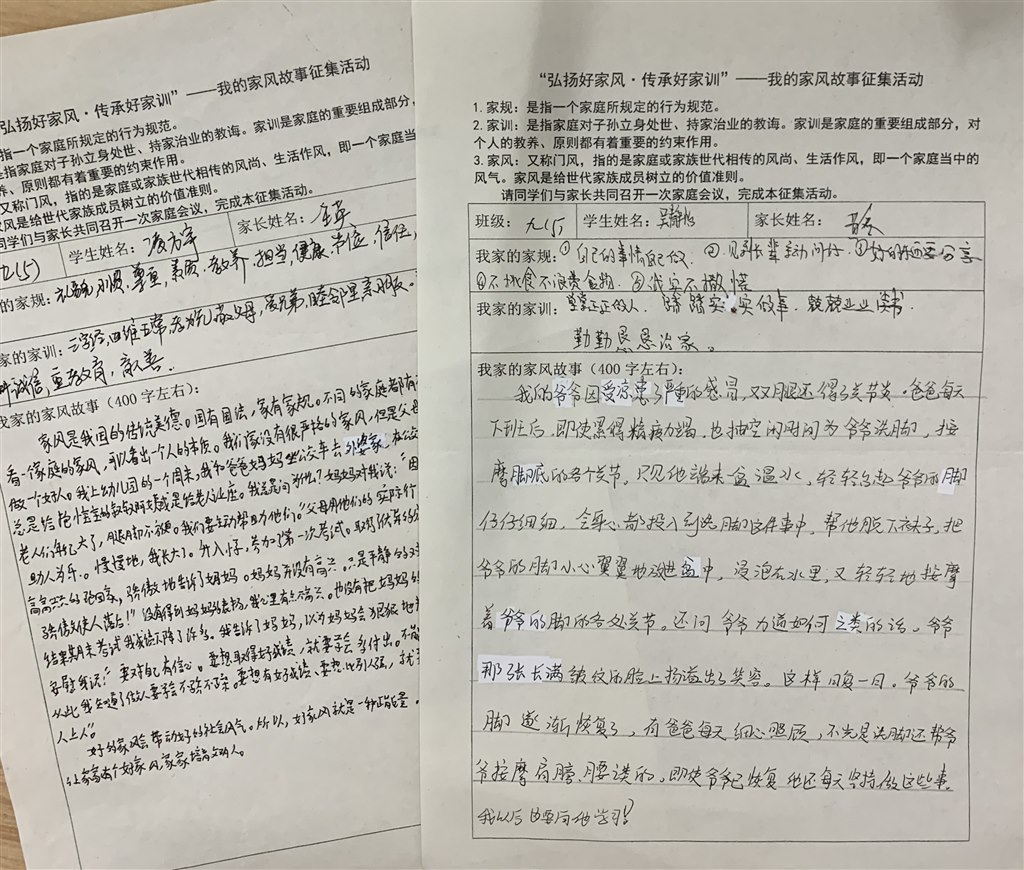 弘扬好家风·传承好家训”——我的家风故事征集活动
指一个家庭所规定的行为规范。
是指家庭对子孙立身处世、持家治业的教诲。家训是家庭的重要组成部分，
养、原则都有着重要的约束作用。
又称门风，指的是家庭或家族世代相传的风尚、生活作风，即一个家庭当
家风是给世代家族成员树立的价值准则。
同学们与家长共同召开一次家庭会议，完成本征集活动。
九(5) 学生姓名：凌方宇 家长姓名：
的家规：礼貌，孝顺，尊重，素质，教养，担当，健康，信任，
家的家训：三字经，四维五常，敬父母，爱兄弟，睦邻里亲朋友。
诚信，重教育，
我家的家风故事（400字左右）：
家风是我国的传统美德。国有国法，家有家规。不同的家庭都有
看一个家庭的家风，可以看出一个人的本质。我们家没有很严格的家风，但是父母
做一个好人。我上幼儿园的一个周末，我和爸爸妈妈坐公交车去外婆家，在公交
总是给老人让座。我总是问为什么？妈妈对我说：“因
老人们年纪大了，腿脚都不便。我们要主动帮助他们。”父母用他们的实际行
助人为乐。慢慢地，我长大了。升入小学，参加了第一次考试。取得优异的成
高高兴兴的跑回家，骄傲地告诉了妈妈。妈妈并没有高兴。只是平静的对
骄傲使人落后！”没有得到妈妈的表扬，我心里有点不高兴。也没有把妈妈的
结果期末考试我成绩下降了许多。我告诉了妈妈，以为妈妈会狠狠地
安慰我说：“要对自己有信心。要想取得好成绩，就要学会多付出。不能
从此我知道了做人要学会不骄不躁。要想有好成绩、要想比别人强，就
人上人”。
好的家风会带动好的社会风气。所以，好家风就是一种正能量。
让家家有个好家风，家家培育文明人。
“弘扬好家风·传承好家训”——我的家风故事征集活动
1.家规：是指一个家庭所规定的行为规范。
2.家训：是指家庭对子孙立身处世、持家治业的教诲。家训是家庭的重要组成部分，对
个人的教养、原则都有着重要的约束作用。
3.家风：又称门风，指的是家庭或家族世代相传的风尚、生活作风，即一个家庭当中的
风气。家风是给世代家族成员树立的价值准则。
请同学们与家长共同召开一次家庭会议，完成本征集活动。
班级：九(5) 学生姓名： 家长姓名：
我家的家规：①自己的事情自己做．②．见到长辈主动问好．③好的东西要分享
④不挑食不浪费食物．⑤诚实不撒谎
我家的家训：堂堂正正的人．踏踏实实做事．兢兢业业读书．
勤勤恳恳治家。
我家的家风故事（400字左右）：
我的爷爷因受凉患了严重的感冒，双腿还得了关节炎。爸爸每天
下班后，即使累得精疲力竭，也抽空闲时间为爷爷洗脚，按
摩脚底的各个关节，只见他端来一盆温水，轻轻勾起爷爷的脚
仔仔细细，全身心都投入到洗脚这件事中，帮他脱下袜子，把
爷爷的脚小心翼翼地放进盆中，浸泡在水里，又轻轻地按摩
着爷爷的脚的各处关节。还问爷爷力道如何之类的话，爷爷
那张长满皱纹的脸上扬溢出了笑容。这样日复一日。爷爷的
脚逐渐恢复了，有爸爸每天细心照顾，不光是洗脚还帮爷
爷按摩肩膀、腰之类的，即使爷爷已恢复他还每天坚持做这些事，
我以后也要向他学习！